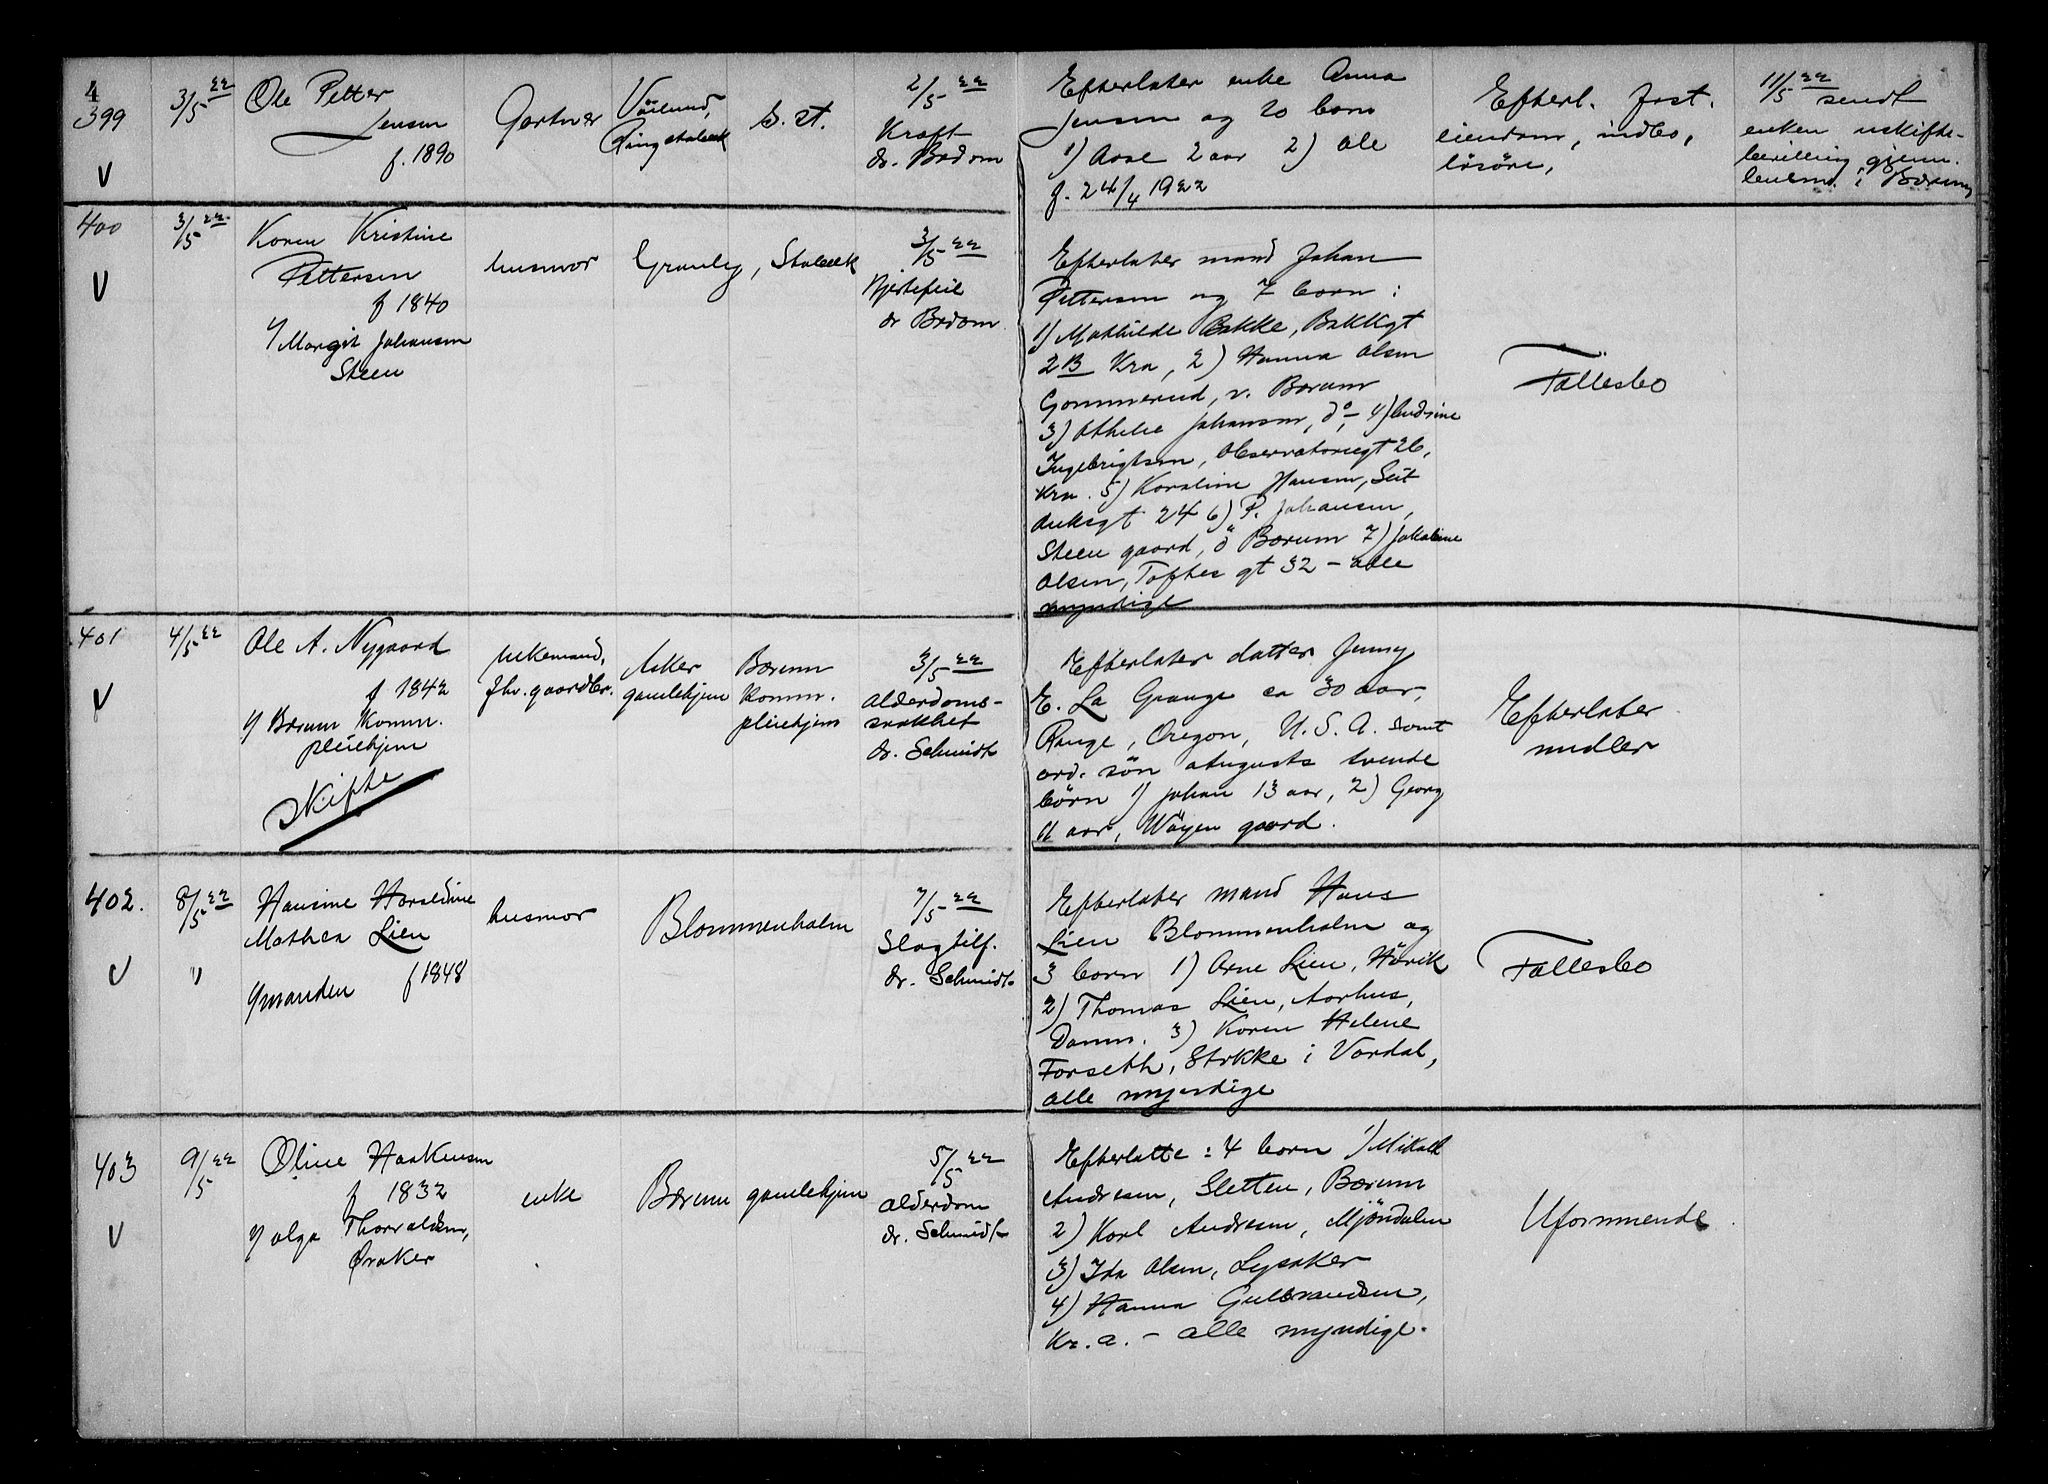 4
399
V
3/5 22
Ole Petter
Jensen
f. 1890
Gartner
Ringstabæk
s. st.
2/5 22
Kræft
dr. Bødom
Efterlater enke Anna
Jensen og 2o barn
1) Aase 2 aar 2) Ole
f. 24/4 1922
Efterl. fast.
eiendom, indbo,
løsöre,
11/5 22 sendt
enken uskifte-
bevilling gjenn.
lensm. i Bærum
400
V
3/5 22
Karen Kristine
Pettersen
f 1840
v/ Margit Johansen
Steen
husmor
Granly, Stabæk
3/5 22
Hjertefeil
dr Bødom
Efterlater mand Johan
Pettersen og 7 barn :
1) Mathilde Bakke, Bakkegt
2B Kra, 2) Hanna Olsen
Gommerud, v. Bærum
3) Othelie Johansen, do, 4) Andrine
Ingebrigtsen, Observatoriegt 2b,
Kra. 5) Karoline Hansen, Seil
duksgt 24 6) P. Johansen,
Steen gaard, ö Bærum 7) Jakobine
Olsen, Toftes gt 32 - alle
myndige
Fællesbo
401
V
4/5 22
Ole A. Nygaard
f 1842
v/ Bærum Komm.
pleiehjem
Skifte
enkemand,
fhv. gaardbr.
Asker
gamlehjem
Bærum
Komm.
pleiehjem
3/5 22
Alderdoms-
svakhet
dr. Schmidt
Efterlater datter Jenny
E. La Grange ca 30 aar,
Range, Oregon, U.S.A. samt
avd. søn Augusts tvende
börn 1) Johan 13 aar, 2) Georg
11 aar, Wöyen gaard.
Efterlater
midler
402.
V
8/5 22
"
Hansine Haraldine
Mathea Lien
f 1848
v/ manden
husmor
Blommenholm
7/5 22
Slagtilf.
dr. Schmidt
Efterlater mand Hans
Lien Blommenholm og
3 barn 1) Arne Lien, Hövik
2) Thomas Lien, Aarhus,
Danm. 3) Karen Helene
Forseth, Stokke i Vardal,
alle myndige
Fællesbo
403
V
9/5 22
Oline Haakensen
f 1832
v/ Olga Thorvaldsen,
Øraker
enke
Bærum gamlehjem
5/5 22
Alderdom
dr. Schmidt
Efterlatte : 4 barn 1) Mikael
Andresen, Sletten, Bærum
2) Karl Andresen, Mjöndalen
3) Ida Olsen, Lysaker
4) Hanna Gulbrandsen,
Kr. a. - alle myndige.
Uformuende